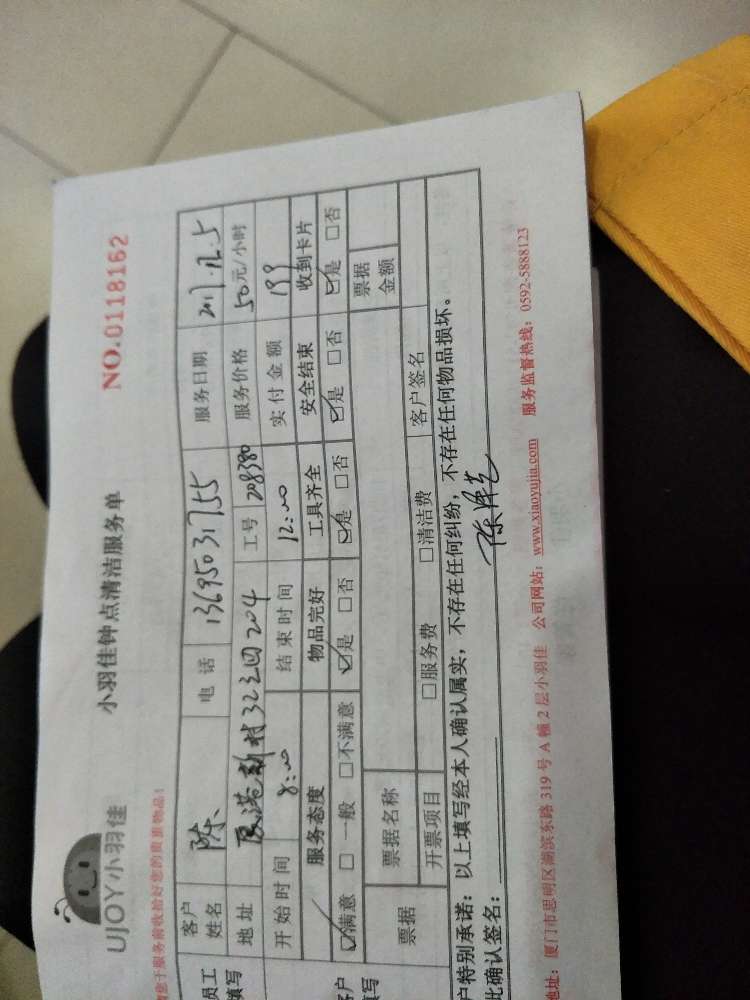 UJOY小羽佳
小羽佳钟点清洁服务单
NO.0118162
您于服务前收拾好您的贵重物品！
员工填写
客户姓名 陈 电 话 13695031755 服务日期 2017.12.5
地 址 新村32之四204 工号 208380 服务价格 50元/小时
开始时间 8:00 结束时间 12:00 实付金额 199
客户填写
服务态度 物品完好 工具齐全 安全结束 收到卡片
☑满意 □一般 □不满意 ☑是 □否 ☑是 □否 ☑是 □否 ☑是 □否
票据 票据名称 票据金额
开票项目 □服务费 □清洁费 客户签名
户特别承诺：以上填写经本人确认属实，不存在任何纠纷，不存在任何物品损坏。
此确认签名：
地址：厦门市思明区湖滨东路 319 号 A 幢 2 层小羽佳 公司网站：www.xiaoyujia.com 服务监督热线：0592-5888123